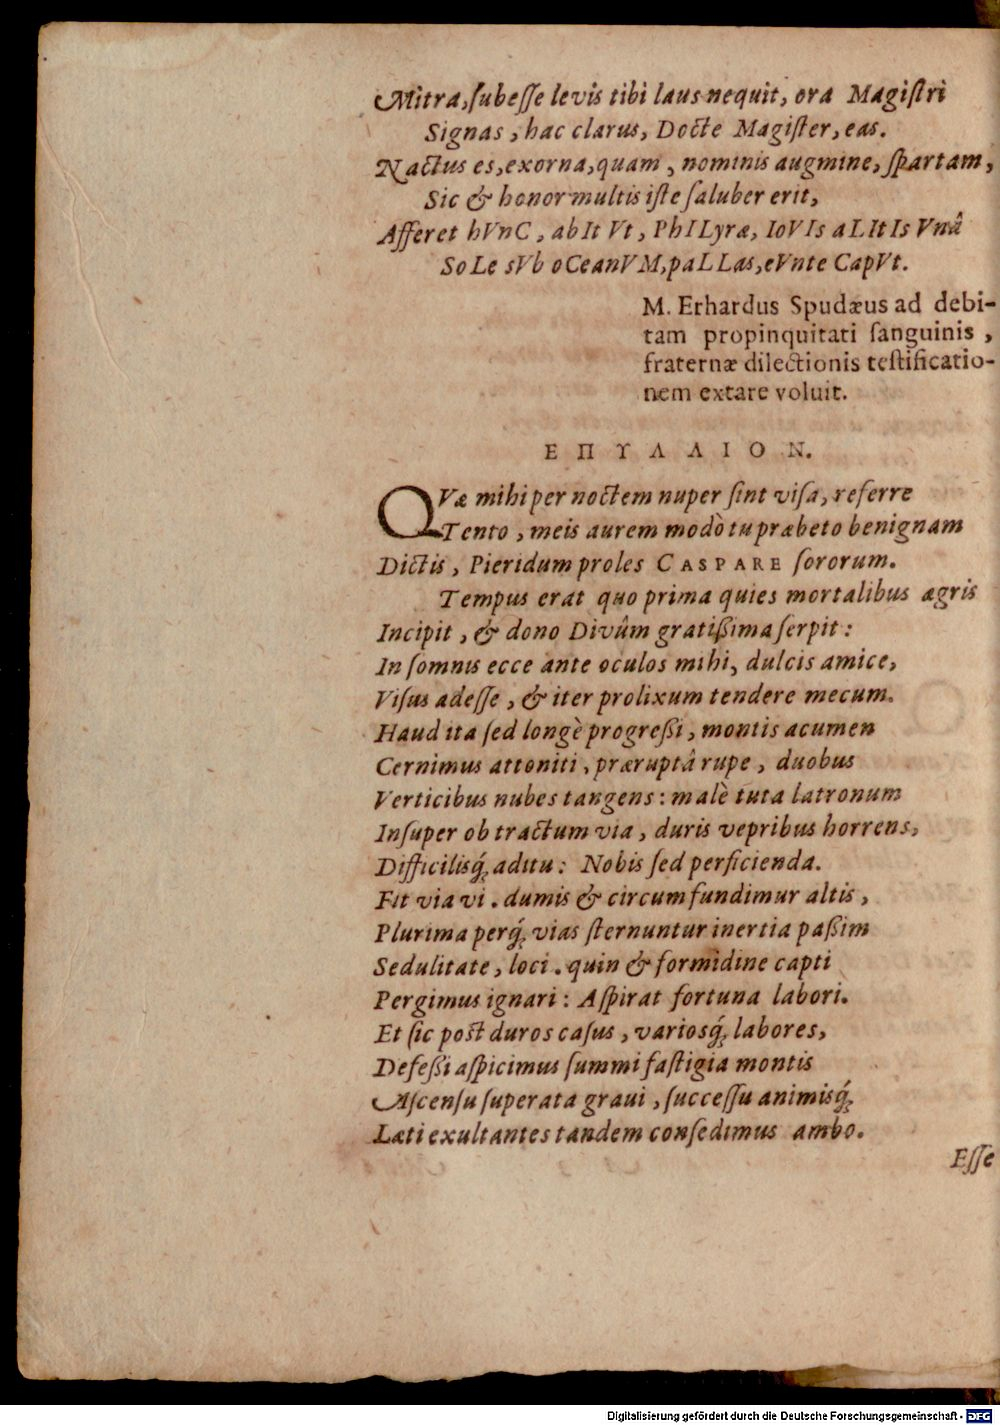 Mitra, ſubeſſe levis tibi laus nequit, ora Magiſtri
Signas, hac clarus, Docte Magiſter, eas.
Nactus es, exorna, quam, nominis augmine, ſpartam,
Sic & honor multis iſte ſaluber erit,
Afferet hVnC, abIt Vt, PhILyræ, IoVIs aLItIs Vnâ
SoLe sVb oCeanVM, paLLas, eVnte CapVt.
M. Erhardus Spudæus ad debi-
tam propinquitati ſanguinis,
fraternæ dilectionis teſtificatio-
nem extare voluit.
ΕΠΥΛΛΙΟΝ.
QVæ mihi per noctem nuper ſint viſa, referre
Tento, meis aurem modò tu præbeto benignam
Dictis, Pieridum proles CASPARE ſororum.
Tempus erat quo prima quies mortalibus ægris
Incipit, & dono Divûm gratißima ſerpit:
In ſomnis ecce ante oculos mihi, dulcis amice,
Viſus adeſſe, & iter prolixum tendere mecum.
Haud ita ſed longè progreßi, montis acumen
Cernimus attoniti, præruptâ rupe, duobus
Verticibus nubes tangens: malè tuta latronum
Inſuper ob tractum via, duris vepribus horrens,
Difficilisq́; aditu: Nobis ſed perficienda.
Fit via vi. dumis & circumfundimur altis,
Plurima perq́; vias ſternuntur inertia paßim
Sedulitate, loci. quin & formidine capti
Pergimus ignari: Aſpirat fortuna labori.
Et ſic poſt duros caſus, variosq́; labores,
Defeßi aſpicimus ſummi faſtigia montis
Aſcenſu ſuperata graui, ſucceſſu animisq́;
Læti exultantes tandem conſedimus ambo.
Eſſe
Digitalisierung gefördert durch die Deutsche Forschungsgemeinschaft - DFG